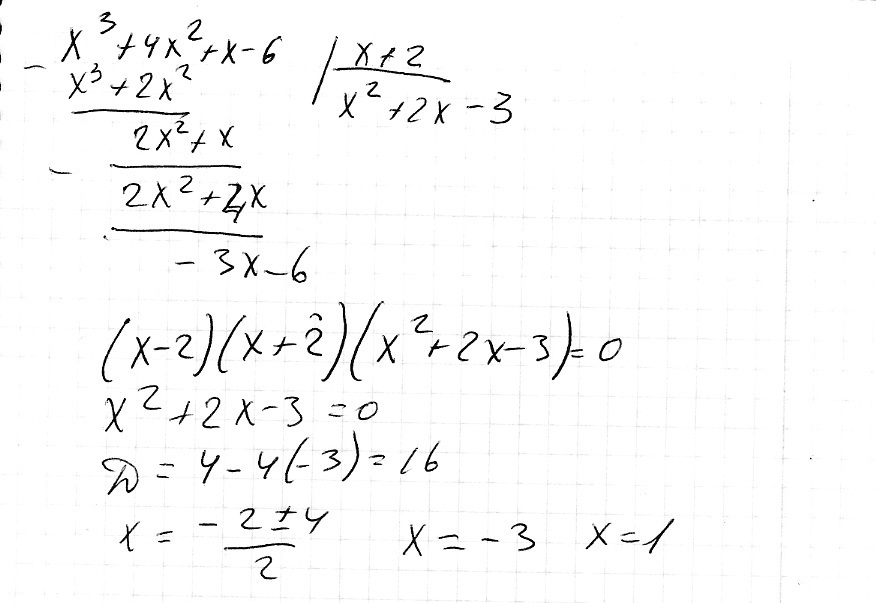 - x³+4x²+x-6 | x+2
x³+2x² x²+2x-3
2x²+x
- 2x²+4x
-3x-6
(x-2)(x+2)(x²+2x-3)=0
x²+2x-3=0
D=4-4(-3)=16
x = (-2±4)/2 x=-3 x=1